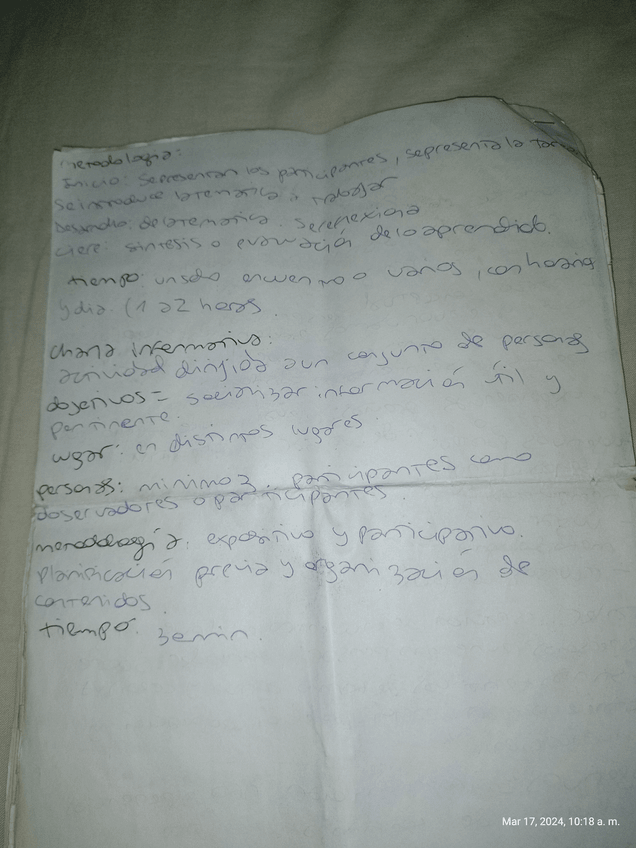 metodologia:
Inicio: Se presentan los participantes, se presenta la
Se introduce la tematica a trabajar
Desarrollo: de la tematica. Se reflexiona
Cierre: sintesis o evaluación de lo aprendido.
tiempo: un solo encuentro o varios, con horario
y dia. (1 a 2 horas.
charla informativa:
actividad dirijida a un conjunto de personas
objetivos = socializar información útil y
pertinente.
lugar: en distintos lugares.
personas: minimo 3. participantes como
observadores o participantes.
metodología: expositivo y participativo.
Planificación previa y organización de
contenidos.
tiempo: 30 min.
Mar 17, 2024, 10:18 a. m.